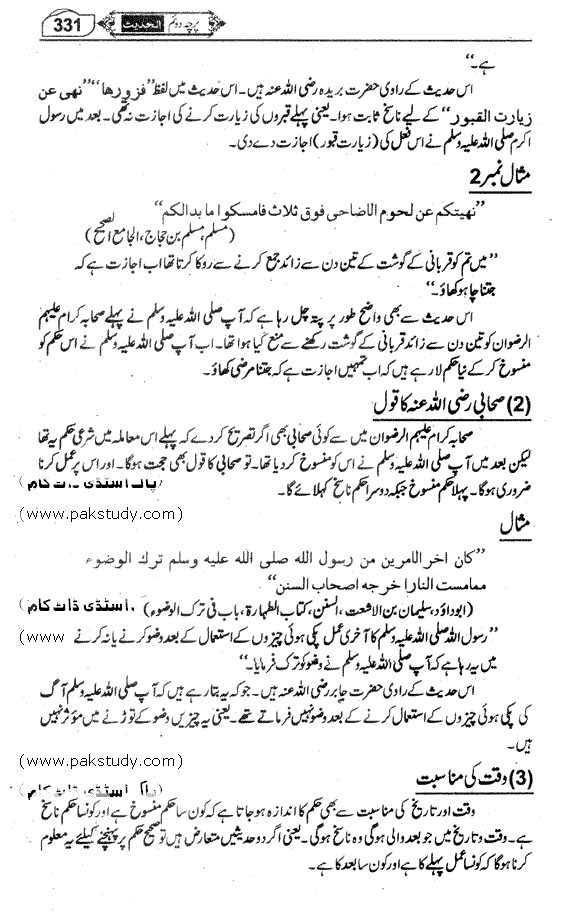 331 الحدیث پرچہ دوئم
ہے۔"
اس حدیث کے راوی حضرت بریدہ رضی اللہ عنہ ہیں۔ اس حدیث میں لفظ "فزورها" "نهى عن
زيارت القبور" کے لیے ناسخ ثابت ہوا۔ یعنی پہلے قبروں کی زیارت کرنے کی اجازت نہ تھی۔ بعد میں رسول
اکرم صلی اللہ علیہ وسلم نے اس فعل کی (زیارت قبور) اجازت دے دی۔
مثال نمبر 2
"نهيتكم عن لحوم الاضاحى فوق ثلاث فامسكوا ما بدالكم"
(مسلم، مسلم بن حجاج، الجامع الصحیح)
"میں تم کو قربانی کے گوشت کے تین دن سے زائد جمع کرنے سے روکا کرتا تھا اب اجازت ہے کہ
جتنا چاہو کھاؤ۔"
اس حدیث سے بھی واضح طور پر پتہ چل رہا ہے کہ آپ صلی اللہ علیہ وسلم نے پہلے صحابہ کرام علیہم
الرضوان کو تین دن سے زائد قربانی کے گوشت رکھنے سے منع کیا ہوا تھا۔ اب آپ صلی اللہ علیہ وسلم نے اس حکم کو
منسوخ کر کے نیا حکم لا رہے ہیں کہ اب تمہیں اجازت ہے کہ جتنا مرضی کھاؤ۔
(2) صحابی رضی اللہ عنہ کا قول
صحابہ کرام علیہم الرضوان میں سے کوئی صحابی بھی اگر تصریح کر دے کہ پہلے اس معاملہ میں شرعی حکم یہ تھا
لیکن بعد میں آپ صلی اللہ علیہ وسلم نے اس کو منسوخ کر دیا تھا۔ تو صحابی کا قول بھی حجت ہوگا۔ اور اس پر عمل کرنا
ضروری ہوگا۔ پہلا حکم منسوخ جبکہ دوسرا حکم ناسخ کہلائے گا۔
(پاک اسٹڈی ڈاٹ کام
(www.pakstudy.com)
مثال
"كان اخر الامرين من رسول الله صلى الله عليه وسلم ترك الوضوء
ممامست النار اخرجه اصحاب السنن"
(ابوداؤد، سلیمان بن الاشعت، السنن، کتاب الطہارۃ، باب فی ترک الوضوء)
اسٹڈی ڈاٹ کام)
"رسول اللہ صلی اللہ علیہ وسلم کا آخری عمل پکی ہوئی چیزوں کے استعمال کے بعد وضو کرنے یا نہ کرنے
(www
میں یہ رہا ہے کہ آپ صلی اللہ علیہ وسلم نے وضو کو ترک فرمایا۔"
اس حدیث کے راوی حضرت جابر رضی اللہ عنہ ہیں۔ جو کہ یہ بتا رہے ہیں کہ آپ صلی اللہ علیہ وسلم آگ
کی پکی ہوئی چیزوں کے استعمال کرنے کے بعد وضو نہیں فرماتے تھے۔ یعنی یہ چیزیں وضو کے توڑنے میں مؤثر نہیں
ہیں۔
(www.pakstudy.com)
(3) وقت کی مناسبت
(پاک اسٹڈی ڈاٹ کام
وقت اور تاریخ کی مناسبت سے بھی حکم کا اندازہ ہو جاتا ہے کہ کون سا حکم منسوخ ہے اور کونسا حکم ناسخ
ہے۔ وقت و تاریخ میں جو بعد والی ہوگی وہ ناسخ ہوگی۔ یعنی اگر دو حدیثیں متعارض ہیں تو صحیح حکم پر پہنچنے کیلئے یہ معلوم
کرنا ہوگا کہ کونسا عمل پہلے کا ہے اور کون سا بعد کا ہے۔